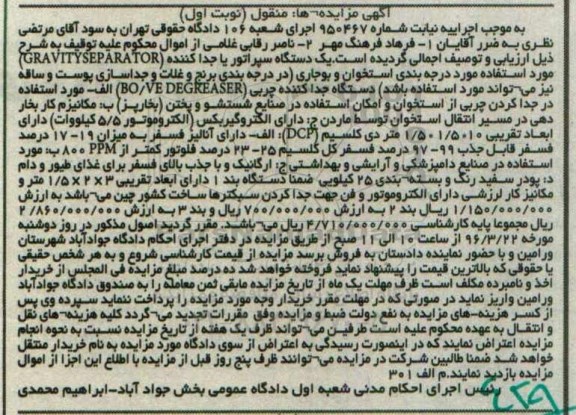 آگهی مزایده¬ها: منقول (نوبت اول)
به موجب اجراییه نیابت شماره ۹۵۰۴۶۷ اجرای شعبه ۱۰۶ دادگاه حقوقی تهران به سود آقای مرتضی
نظری به ضرر آقایان ۱- فرهاد فرهنگ مهر ۲- ناصر رقابی غلامی از اموال محکوم علیه توقیف به شرح
ذیل ارزیابی و توصیف اجمالی گردیده است.یک دستگاه سپراتور یا جدا کننده (GRAVITYSEPARATOR)
مورد استفاده مورد درجه بندی استخوان و بوجاری (در درجه بندی برنج و غلات و جداسازی پوست و ساقه
نیز می¬تواند مورد استفاده باشد) دستگاه جدا کننده چربی (BO/VE DEGREASER) الف- مورد استفاده
در جدا کردن چربی از استخوان و امکان استفاده در صنایع شستشو و پختن (بخارپز) ب: مکانیزم کار بخار
دهی در مسیر انتقال استخوان توسط ماردن ج: دارای الکتروگیربکس (الکتروموتور ۵/۵ کیلووات) دارای
ابعاد تقریبی ۱/۵۰۱/۵۰۱۰ متر دی کلسیم (DCP): الف- دارای آنالیز فسفر به میزان ۱۹- ۱۷ درصد
فسفر قابل جذب ۹۹- ۹۷ درصد فسفر کل کلسیم ۲۵- ۲۳ درصد فلوتور کمتر از ۸۰۰ PPM ب: مورد
استفاده در صنایع دامپزشکی و آرایشی و بهداشتی ج: ارگانیک و با جذب بالای فسفر برای غذای طیور و دام
د: پودر سفید رنگ و بسته¬بندی ۲۵ کیلویی ضمنا دستگاه بند ۱ دارای ابعاد تقریبی ۳ × ۲ × ۱/۵ متر و
مکانیز کار لرزشی دارای الکتروموتور و فن جهت جدا کردن سبکترها ساخت کشور چین می¬باشد به ارزش
۱/۱۵۰/۰۰۰/۰۰۰ ریال بند ۲ به ارزش ۷۰۰/۰۰۰/۰۰۰ ریال و بند ۳ به ارزش ۲/۸۶۰/۰۰۰/۰۰۰
ریال مجموعا پایه کارشناسی ۴/۷۱۰/۰۰۰/۰۰۰ ریال می¬باشد. مقرر گردید اصول مذکور در روز دوشنبه
مورخه ۹۶/۳/۲۲ از ساعت ۱۰ الی ۱۱ صبح از طریق مزایده در دفتر اجرای احکام دادگاه جوادآباد شهرستان
ورامین و با حضور نماینده دادستان به فروش برسد مزایده از قیمت کارشناسی شروع و به هر شخص حقیقی
یا حقوقی که بالاترین قیمت را پیشنهاد نماید فروخته خواهد شد ده درصد مبلغ مزایده فی المجلس از خریدار
اخذ و نامبرده مکلف است ظرف مهلت یک ماه از تاریخ مزایده مابقی ثمن معامله را به صندوق دادگاه جوادآباد
ورامین واریز نماید در صورتی که در مهلت مقرر خریدار وجه مورد مزایده را پرداخت ننماید سپرده وی پس
از کسر هزینه¬های مزایده به نفع دولت ضبط و مزایده وفق مقررات تجدید می¬گردد کلیه هزینه¬های نقل
و انتقال به عهده محکوم علیه است طرفین می¬تواند ظرف یک هفته از تاریخ مزایده نسبت به نحوه انجام
مزایده اعتراض نمایند که در اینصورت رسیدگی به اعتراض از سوی دادگاه مورد مزایده به نام خریدار منتقل
خواهد شد ضمنا طالبین شرکت در مزایده می¬توانند ظرف پنج روز قبل از مزایده با اطلاع این اجزا از اموال
مزایده بازدید نمایند.م الف ۳۰۱
رئیس اجرای احکام مدنی شعبه اول دادگاه عمومی بخش جواد آباد-ابراهیم محمدی